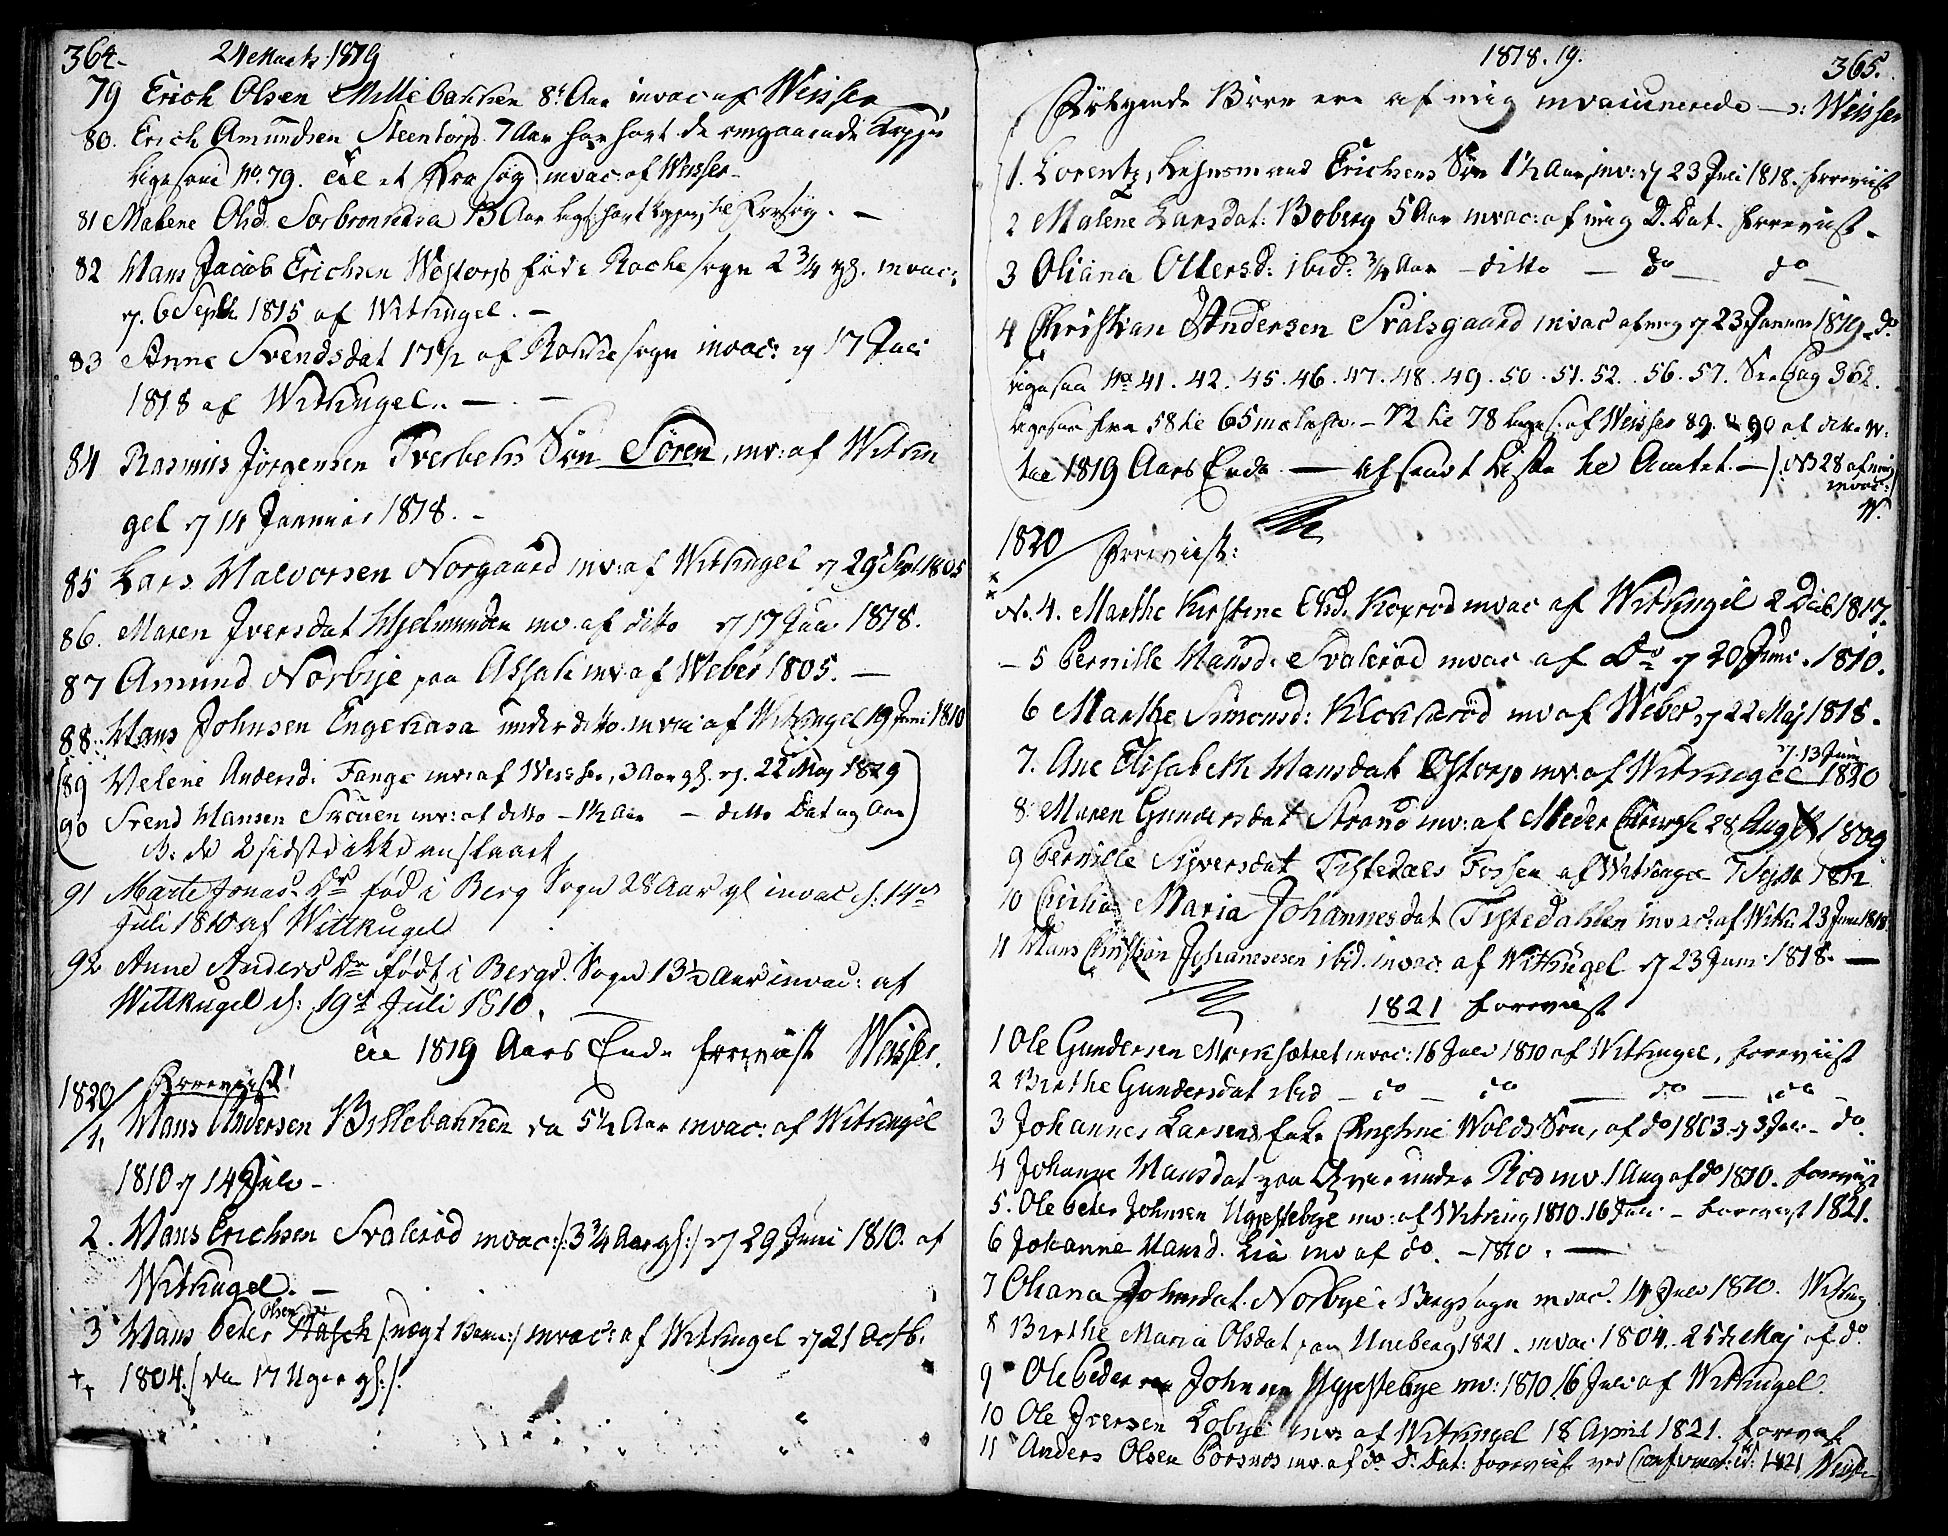 364.
24 Marts 1819
79 Erich Olsen Millebakken 8t Aar invac af Weisser
80. Erich Amundsen Steentorp 7 Aar har havt de omgaaende Kopper
ligesom No. 79. til et Forsøg invac: af Weisser
81 Malene Olsd. 13 Aar til Forsøg. —
82 Hans Jacob Erichsen Westorp föde Rocke sogn 2 3/4 gl. invac:
d. 6 Septb. 1815 af Witkugel. —
83 Anne Svendsdat 17 1/2 af Rokke sogn invac: d 17 Juli
1818 af Witkugel. — —
84 Rasmus Jörgensen Tverbeks Sön Sören, inv: af Witku
gel d 14 Januar 1818. -
85 Lars Halvorsen Norgaard inv: af Witkugel d 29 Sept. 1805
86. Maren Iversdat Hjelmunden inv. af ditto d 17 Juni 1818.
87 Amund Norbye paa Assak inv: af Weber 1805. —
88. Hans Johnsen Engekasa under ditto invac: af Witkugel 19 Juni 1810
89 Helene Andersd: Tange inv: af Weisser, 3 Aar gl. d. 22 May 1819
90 Svend Hansen Skouen inv: af ditto - 1 1/2 Aar - ditto Dat og Aar
N. de 2 sidste ikke anslaaet
91 Marte Jonas Dr född i Berg Sogn 28 Aar gl invac d: 14de
Juli 1810 af Wittkugel
92 Anne Anders Dr födt i Bergs Sogn 13 1/2 Aar invac: af
Wittkugel d: 19de Juli 1810.
til 1819 Aars Ende foreviist Weisser.
1820 Foreviist!
1. Hans Andersen Billebakken da 5 1/2 Aar invac: af Witkugel
1810 d 14 Julii -
2. Hans Erichsen Svalerød invac: /: 3 3/4 Aar gl :/ d 29 Juni 1810. af
Witkugel. —
Olsen
3 Hans Peter Hasch /: uægt Barn :/ invac: af Witkugel d 21 Octb.
1804 /: da 17 Uger gl :/.
1818. 19.
365.
Fölgende Börn ere af mig invaccinerede —: Weisser
1. Lorentz, Lehnsmand Erichsens Sön 1 1/2 Aar, inv: d 23 Juli 1818. foreviist
2 Malene Larsdat: Boberg 5 Aar invac: af mig D. Dat. foreviist.
3 Oliana Ottersd: ibid: 3/4 Aar - ditto - do - do -
4 Christian Andersen Svalsgaard invac af mig d 23 Januar 1819. do
ligesaa No 41. 42. 45. 46. 47. 48. 49. 50. 51. 52. 56. 57. See Pag 362.
ligesaa fra 58 til 65 — 72 til 78 af Weisser 89. & 90 af ditto W:
til 1819 Aars Ende. — Afsendt Liste til Amtet. — /: NB 28 af mig
invac:
W.
1820 / Foreviist:
No. 4. Marthe Kirstine Olsd. Koxrod invac af Witkugel 2 Decb 1817.
- 5 Pernille Hansd: Svalerød invac af Do d 20 Juni 1810.
6 Marthe Simonsd: Klokkerød inv af Weber d 22 Maj 1818.
7. Ane Elisabeth Hansdat Østorp inv: af Witkugel d. 13 Juni 1810
8. Maren Gundersdat Strand inv: af Meder Chirurg 28 Aug 1809
9 Pernille Syversdat Tistedals Fossen af Witkugel 7 Septb 1812
10 Cicilia Maria Johannesdat Tistedahlen invac: af Witk. 23 Juni 1818
11 Hans Christian Johannesen ibid. invac. af Witkugel d 23 Juni 1818. —
1821 foreviist
1 Ole Gundersen Mörksætret invac: 16 Juli 1810 af Witkugel, foreviist
2 Birthe Gundersdat ibid - do - do — do — do -
3 Johannes Larsens Enke Christine Wolds Sön, af do 1803. d 3 - do.
4 Johanne Hansdat paa under Röd inv. 1 Aug af do 1810. foreviist
5. Ole Peter Johnsen Ugjestebye inv: af Witkug 1810. 16 Juli - foreviist 1821.
6 Johanne Hansd. Lia inv af do. - 1810. —
7 Oliana Johnsdat. Norbye i Bergs sogn invac. 14 Juli 1810. Witkug
8 Birthe Maria Olsdat paa Uneberg 1821. invac 1804. 25de Maj af do
9 Ole Peder Johnsen Ugjestebye inv: 1810 16 Juli af Witkugel.
10 Ole Iversen Lobye inv: af Witkugel 18 April 1821. foreviist
11 Anders Olsen Porsnes inv: af do D. Dat: foreviist ved 1821 Weisser